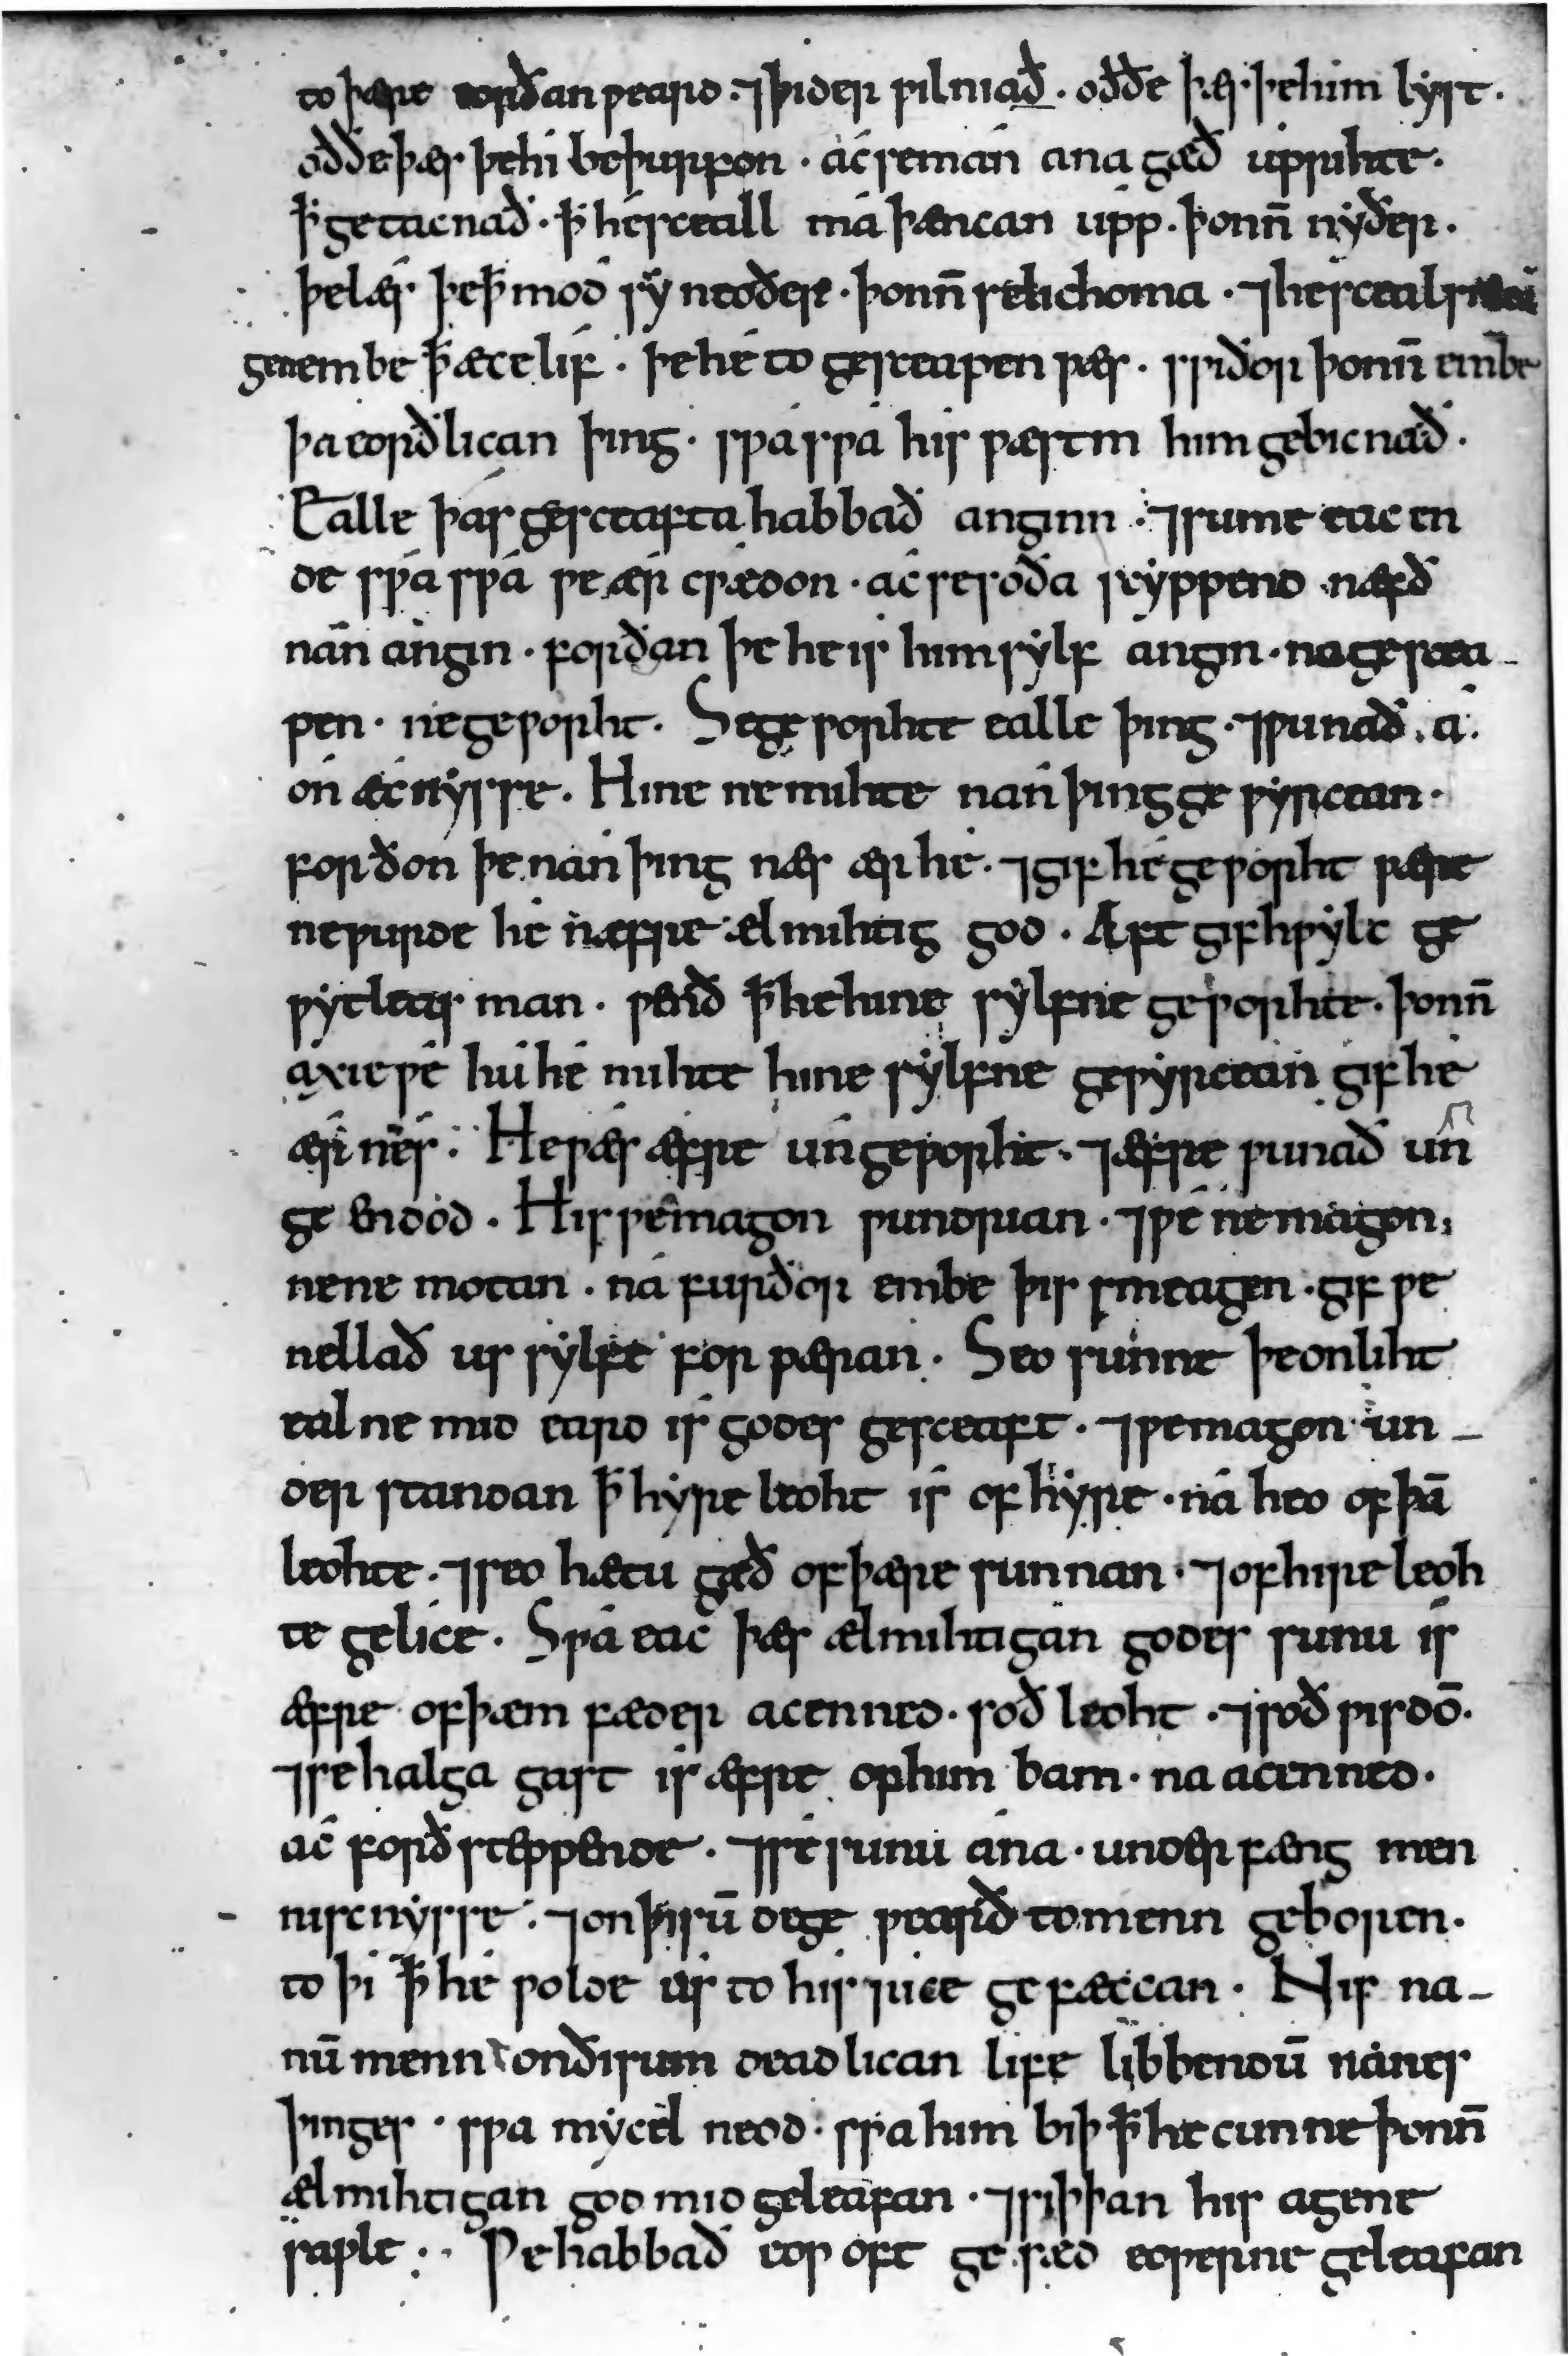 to þære eorðan ƿeard · ⁊ þider ƿilniað · oððe þæs þe him lyst ·
oððe þæs þe hī beþurfon · ac se man ana gæð uprihte ·
ꝥ getacnað · ꝥ he sceall ma þæncan upp · þonn̄ nyðer ·
þe læs þe ꝥ mod sy neoðere · þonn̄ se lichoma · ⁊ he sceal
gean embe ꝥ æce lif · þe he to gesceapen ƿæs · sƿiðor þonn̄ embe
þa eorðlican þing · sƿa sƿa his ƿæstm him gebicnað ·
Ealle þas gesceafta habbað anginn · ⁊ sume eac en
de sƿa sƿa ƿe ær cƿædon · ac se soða scyppend næfð
nan angin · forðan þe he is him sylf angin · na gescea-
pen · ne geƿorht · Se geƿorhte ealle þing · ⁊ ƿunað · a ·
on æcnysse · Hine ne mihte nan þing geƿyrcean ·
forðon þe nan þing næs ær he · ⁊ gif he geƿorht ƿære
ne ƿurde he næfre ælmihtig god · Æft gif hƿylc ge
ƿytleas man · ƿenð ꝥ he hine sylfne geƿorhte · þonn̄
axie ƿe hu he mihte hine sylfne geƿyrcean gif he
ær nes · He ƿæs æfre ungeƿorht · ⁊ æfre ƿunað un
geendod · His ƿe magon ƿundrian · ⁊ ƿe ne magon ·
ne ne motan · na furðor embe þis smeagen · gif ƿe
nellað us sylfe forƿæran · Seo sunne þe onliht
ealne middeard is godes gesceaft · ⁊ ƿe magon un-
der standan ꝥ hyre leoht is of hyre · na heo of þā
leohte · ⁊ seo hætu gæð of þære sunnan · ⁊ of hire leoh
te gelice · Sƿa eac þæs ælmihtigan godes sunu is
æfre of þæm fæder acenned · soð leoht · ⁊ soð ƿisdō ·
⁊ se halga gast is æfre of him bam · na acenned ·
ac forðstæppende · ⁊ se sunu ana · underfæng men
niscnysse · ⁊ on þisū dege ƿearið to menn geboren ·
to þi ꝥ he ƿolde us to his rice gefæccan · Nis na-
nū menn on ðisum deadlican life libbendū nanes
þinges · sƿa mycel neod · sƿa him biþ ꝥ he cunne þonn̄
ælmihtigan god mid geleafan · ⁊ siþþan his agene
saƿle · Ƿe habbað eoƿ oft gesæd eoƿerne geleafan